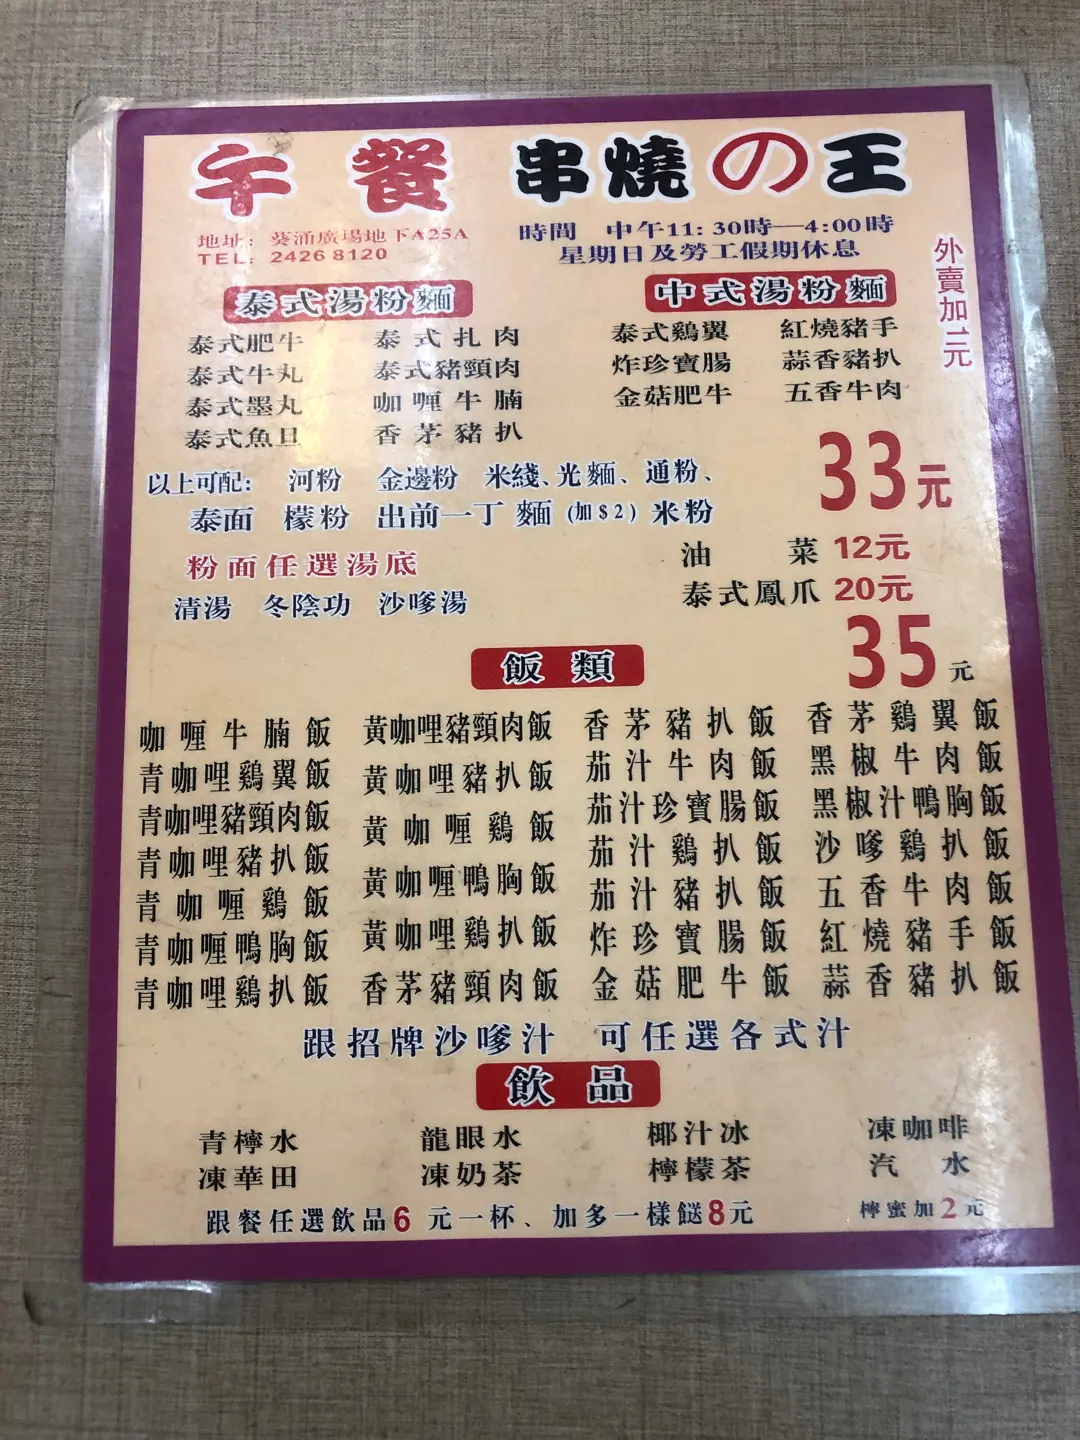 午餐 串燒の王
地址: 葵涌廣場地下A25A
TEL: 2426 8120
時間 中午11:30時—4:00時
星期日及勞工假期休息
外賣加1元
泰式湯粉麵
泰式肥牛 泰式扎肉
泰式牛丸 泰式豬頸肉
泰式墨丸 咖喱牛腩
泰式魚旦 香茅豬扒
中式湯粉麵
泰式鷄翼 紅燒豬手
炸珍寶腸 蒜香豬扒
金菇肥牛 五香牛肉
33元
以上可配: 河粉 金邊粉 米綫、光麵、通粉、
泰面 檬粉 出前一丁麵 (加$2) 米粉
粉面任選湯底
清湯 冬陰功 沙嗲湯
油菜 12元
泰式鳳爪 20元
飯類
35元
咖喱牛腩飯 黃咖哩豬頸肉飯 香茅豬扒飯 香茅鷄翼飯
青咖哩鷄翼飯 黃咖哩豬扒飯 茄汁牛肉飯 黑椒牛肉飯
青咖哩豬頸肉飯 黃咖喱鷄飯 茄汁珍寶腸飯 黑椒汁鴨胸飯
青咖哩豬扒飯 黃咖喱鴨胸飯 茄汁鷄扒飯 沙嗲鷄扒飯
青咖喱鷄飯 黃咖哩鷄扒飯 茄汁豬扒飯 五香牛肉飯
青咖喱鴨胸飯 香茅豬頸肉飯 炸珍寶腸飯 紅燒豬手飯
青咖哩鷄扒飯 金菇肥牛飯 蒜香豬扒飯
跟招牌沙嗲汁 可任選各式汁
飲品
青檸水 龍眼水 椰汁冰 凍咖啡
凍華田 凍奶茶 檸檬茶 汽水
跟餐任選飲品6元一杯、加多一樣餸8元
檸蜜加2元